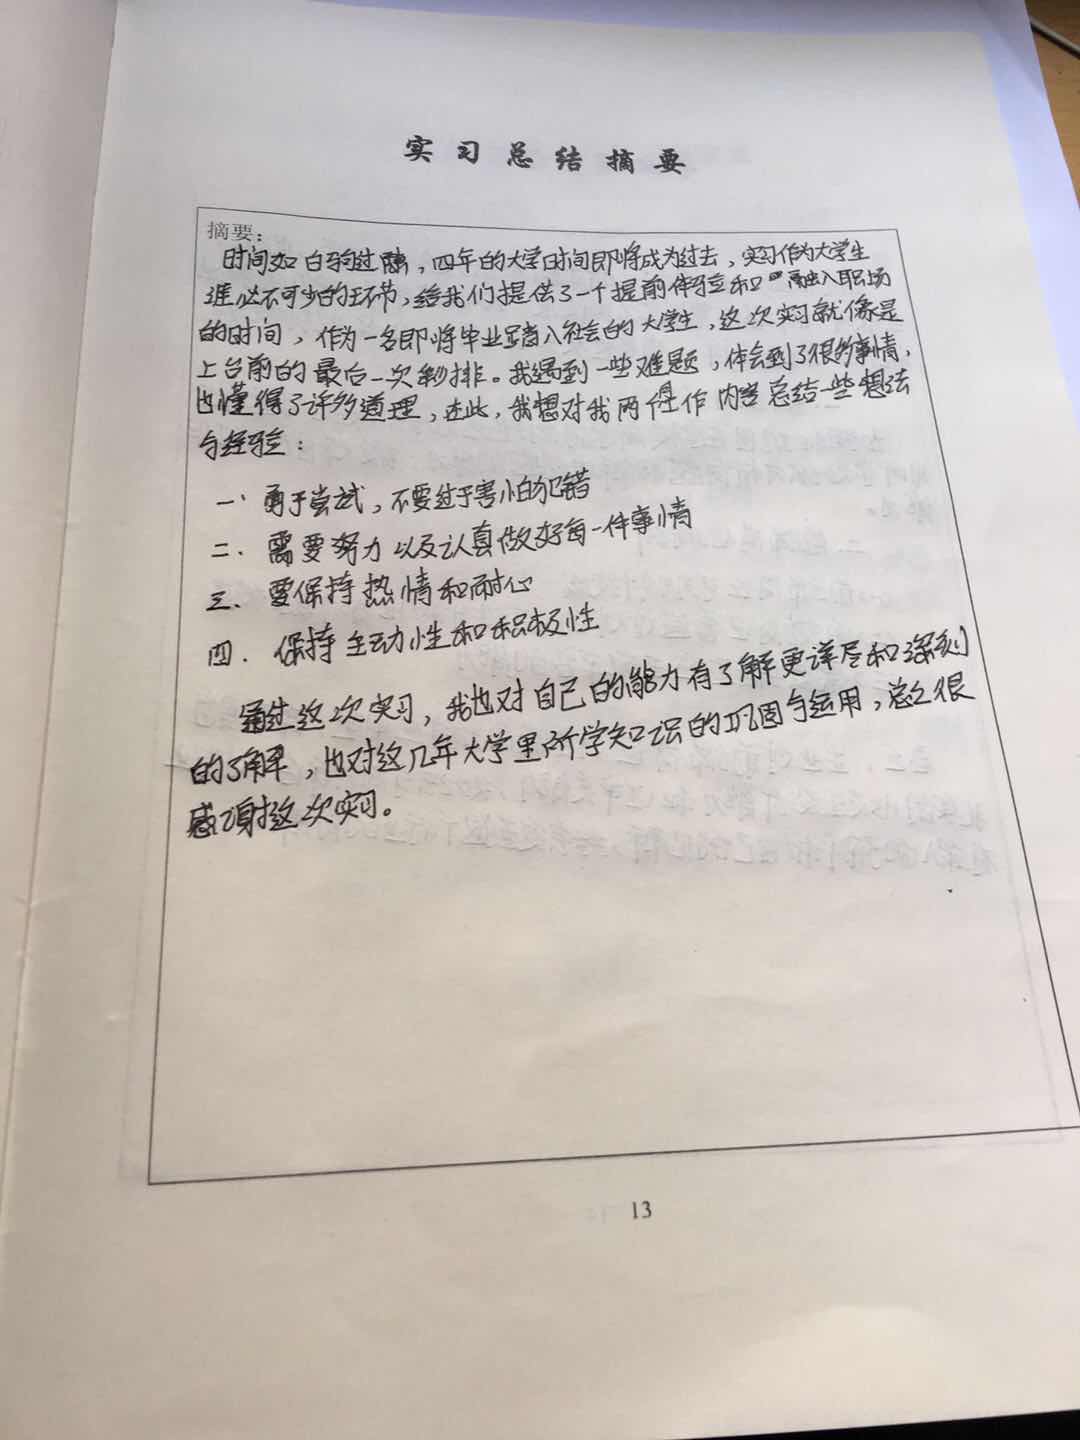 实习总结摘要
摘要:
时间如白驹过隙，四年的大学时间即将成为过去，实习作为大学生
涯必不可少的环节，给我们提供了一个提前体验和融入职场
的时间，作为一名即将毕业踏入社会的大学生，这次实习就像是
上台前的最后一次彩排。我遇到一些难题，体会到了很多事情，
也懂得了许多道理，在此，我想对我两件工作内容总结一些想法
与经验：
一、勇于尝试，不要过于害怕犯错
二、需要努力以及认真做好每一件事情
三、要保持热情和耐心
四、保持主动性和积极性
通过这次实习，我也对自己的能力有了解更详尽和深刻
的了解，也对这几年大学里所学知识的巩固与运用，总之很
感谢这次实习。
13